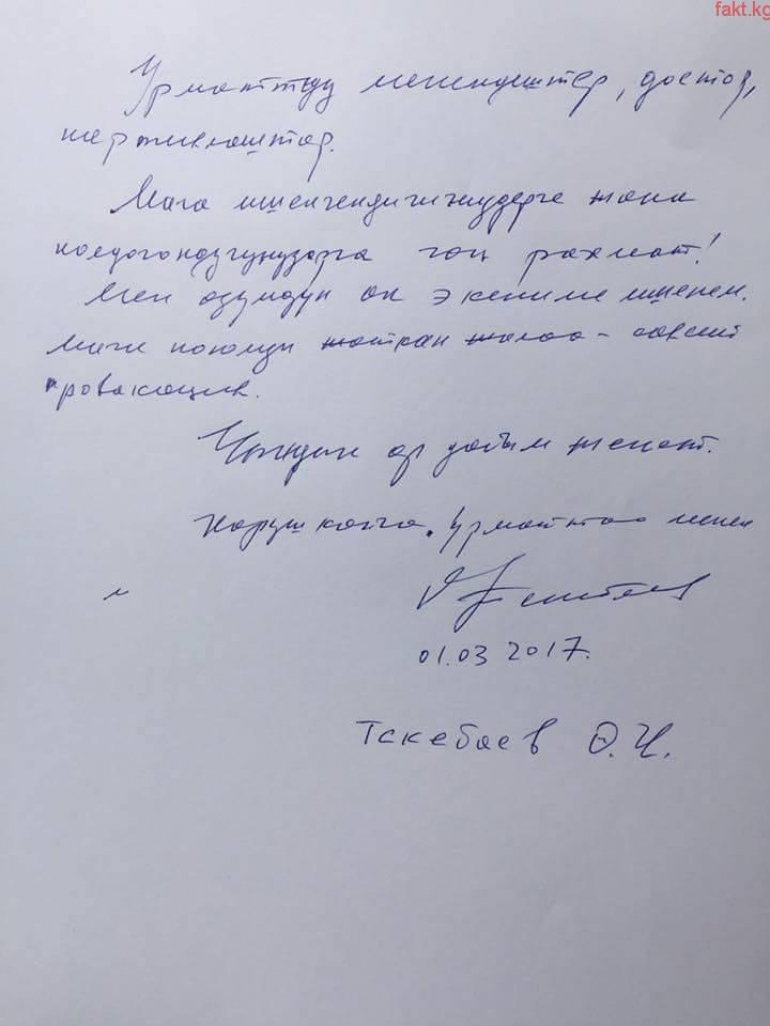 fakt.kg
Урматтуу мекендештер, достор,
жердештер.
Мага ишенгендигиңиздерге жана
колдогондугуңуздарга чоң рахмат!
Мен өзүмдүн ак экениме ишенем.
Мага коюлуп жаткан жалаа – саясий
провокация.
Чындык ар дайым жеңет.
Көрүшкөнчө. Урматтоо менен
01.03 2017.
Текебаев Ө.Ч.